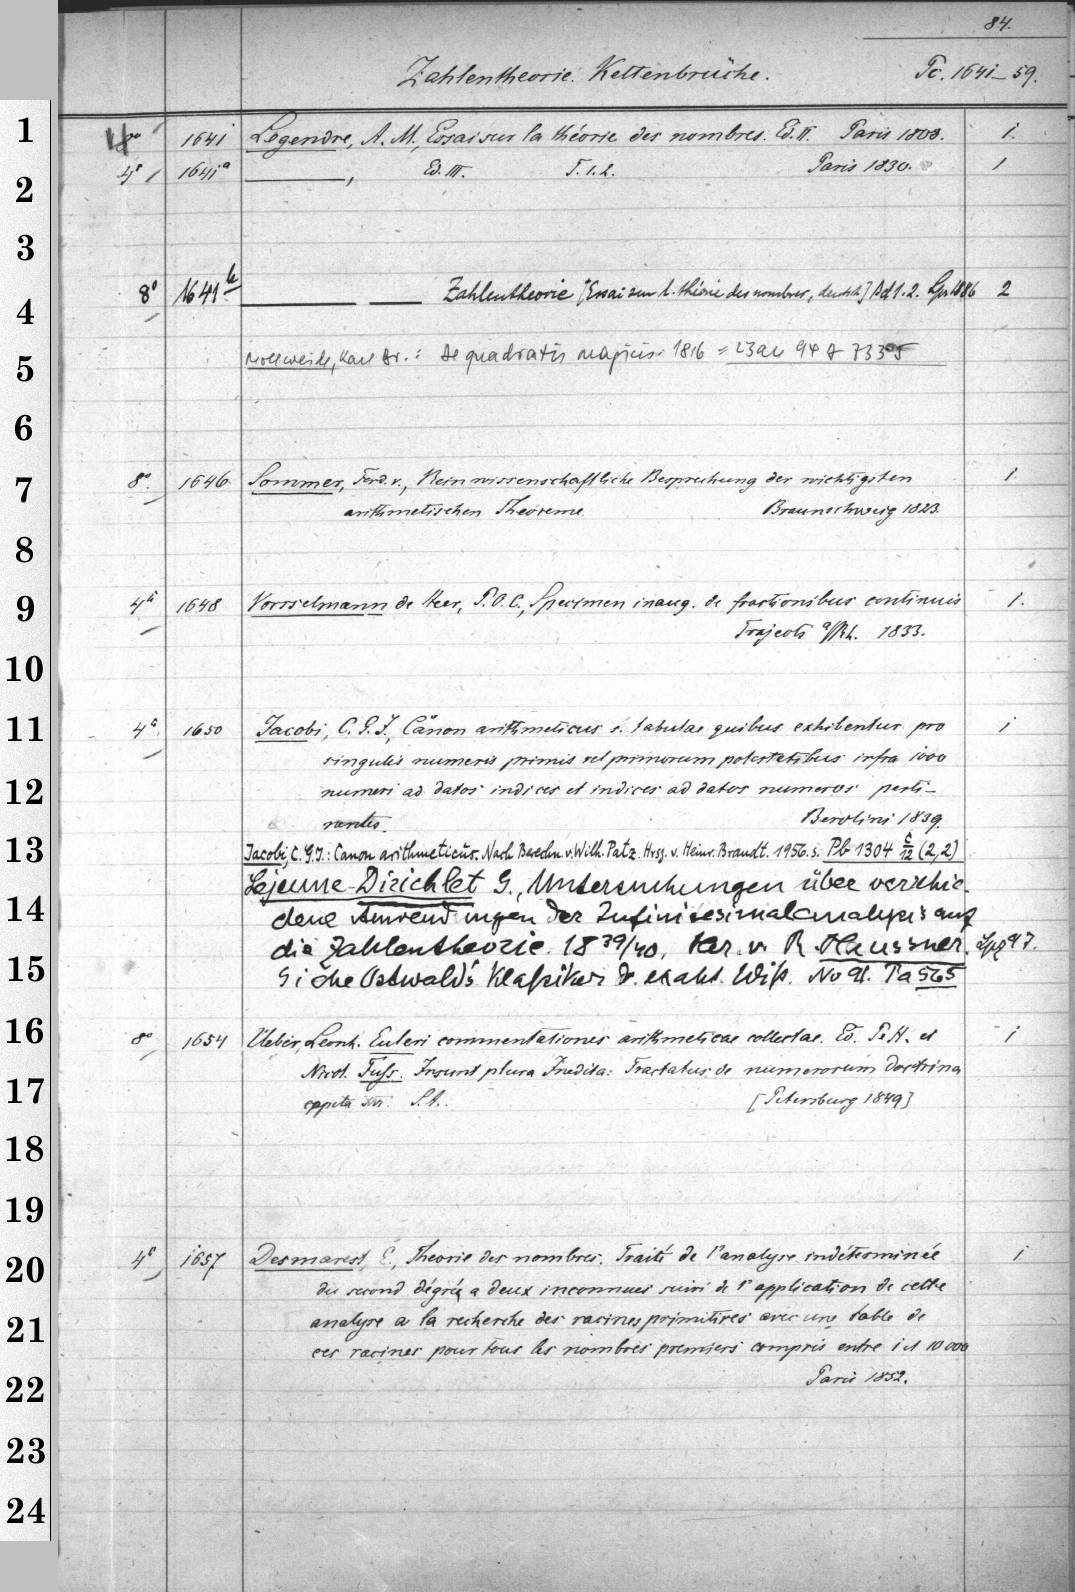 84.
Zahlentheorie. Kettenbrüche. Tc. 1641–59.
1 4° 1641 Legendre, A. M., Essai sur la théorie des nombres. Ed. II. Paris 1808. 1.
4° 1641a ———, Ed. III. T. 1. 2. Paris 1830. 1
2
3
8° 1641b ——— —— Zahlentheorie [Essai sur l. théorie des nombres, deutsch] Bd 1. 2. Lpz 1886 2
4
5 Mollweide, Karl Br.: De quadratis magicis 1816 = 94 A 7335
6
7 8° 1646 Sommer, Ferd. v., Rein wissenschaftliche Besprechung der wichtigsten 1
arithmetischen Theoreme. Braunschweig 1823.
8
9 4° 1648 Vorsselmann de Heer, P. O. C., Specimen inaug. de fractionibus continuis 1.
Trajecti a/Rh. 1833.
10
11 4° 1650 Jacobi, C. G. J., Canon arithmeticus s. tabulae quibus exhibentur pro 1
singulis numeris primis vel primorum potestatibus infra 1000
12 numeri ad datos indices et indices ad datos numeros perti-
nentes. Berolini 1839.
13 Jacobi, C. G. J.: Canon arithmeticus. Nach Berechn. v. Wilh. Patz. Hrsg. v. Heinr. Brandt. 1956. s. Pb 1304 C/12 (2,2)
Lejeune-Dirichlet G., Untersuchungen über verschie-
14 dene Anwendungen der Infinitesimalanalysis auf
die Zahlentheorie. 1839/40. Her. v. R. Haussner. Lpz 97.
15 Siehe Ostwald's Klassiker d. exakt. Wiss. No 91. Pa 565
16 8° 1654 Ueber, Leonh. Euleri commentationes arithmeticae collectae. Ed. P. H. et 1
Nicol. Fuss. Insunt plura Inedita: Tractatus de numerorum doctrina
17 capita XVI. S. A. [Petersburg 1849]
18
19
20 4° 1657 Desmarest, E., Theorie des nombres. Traité de l'analyse indéterminée 1
du second dégrée a deux inconnues suivi de l'application de cette
21 analyse a la recherche des racines primitives avec une table de
ces racines pour tous les nombres premiers compris entre 1 et 10 000
22 Paris 1852.
23
24